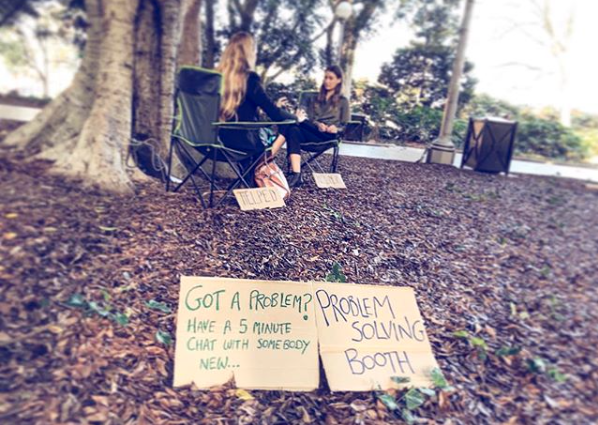 HELPED
GOT A PROBLEM?
HAVE A 5 MINUTE
CHAT WITH SOMEBODY
NEW...
PROBLEM
SOLVING
BOOTH